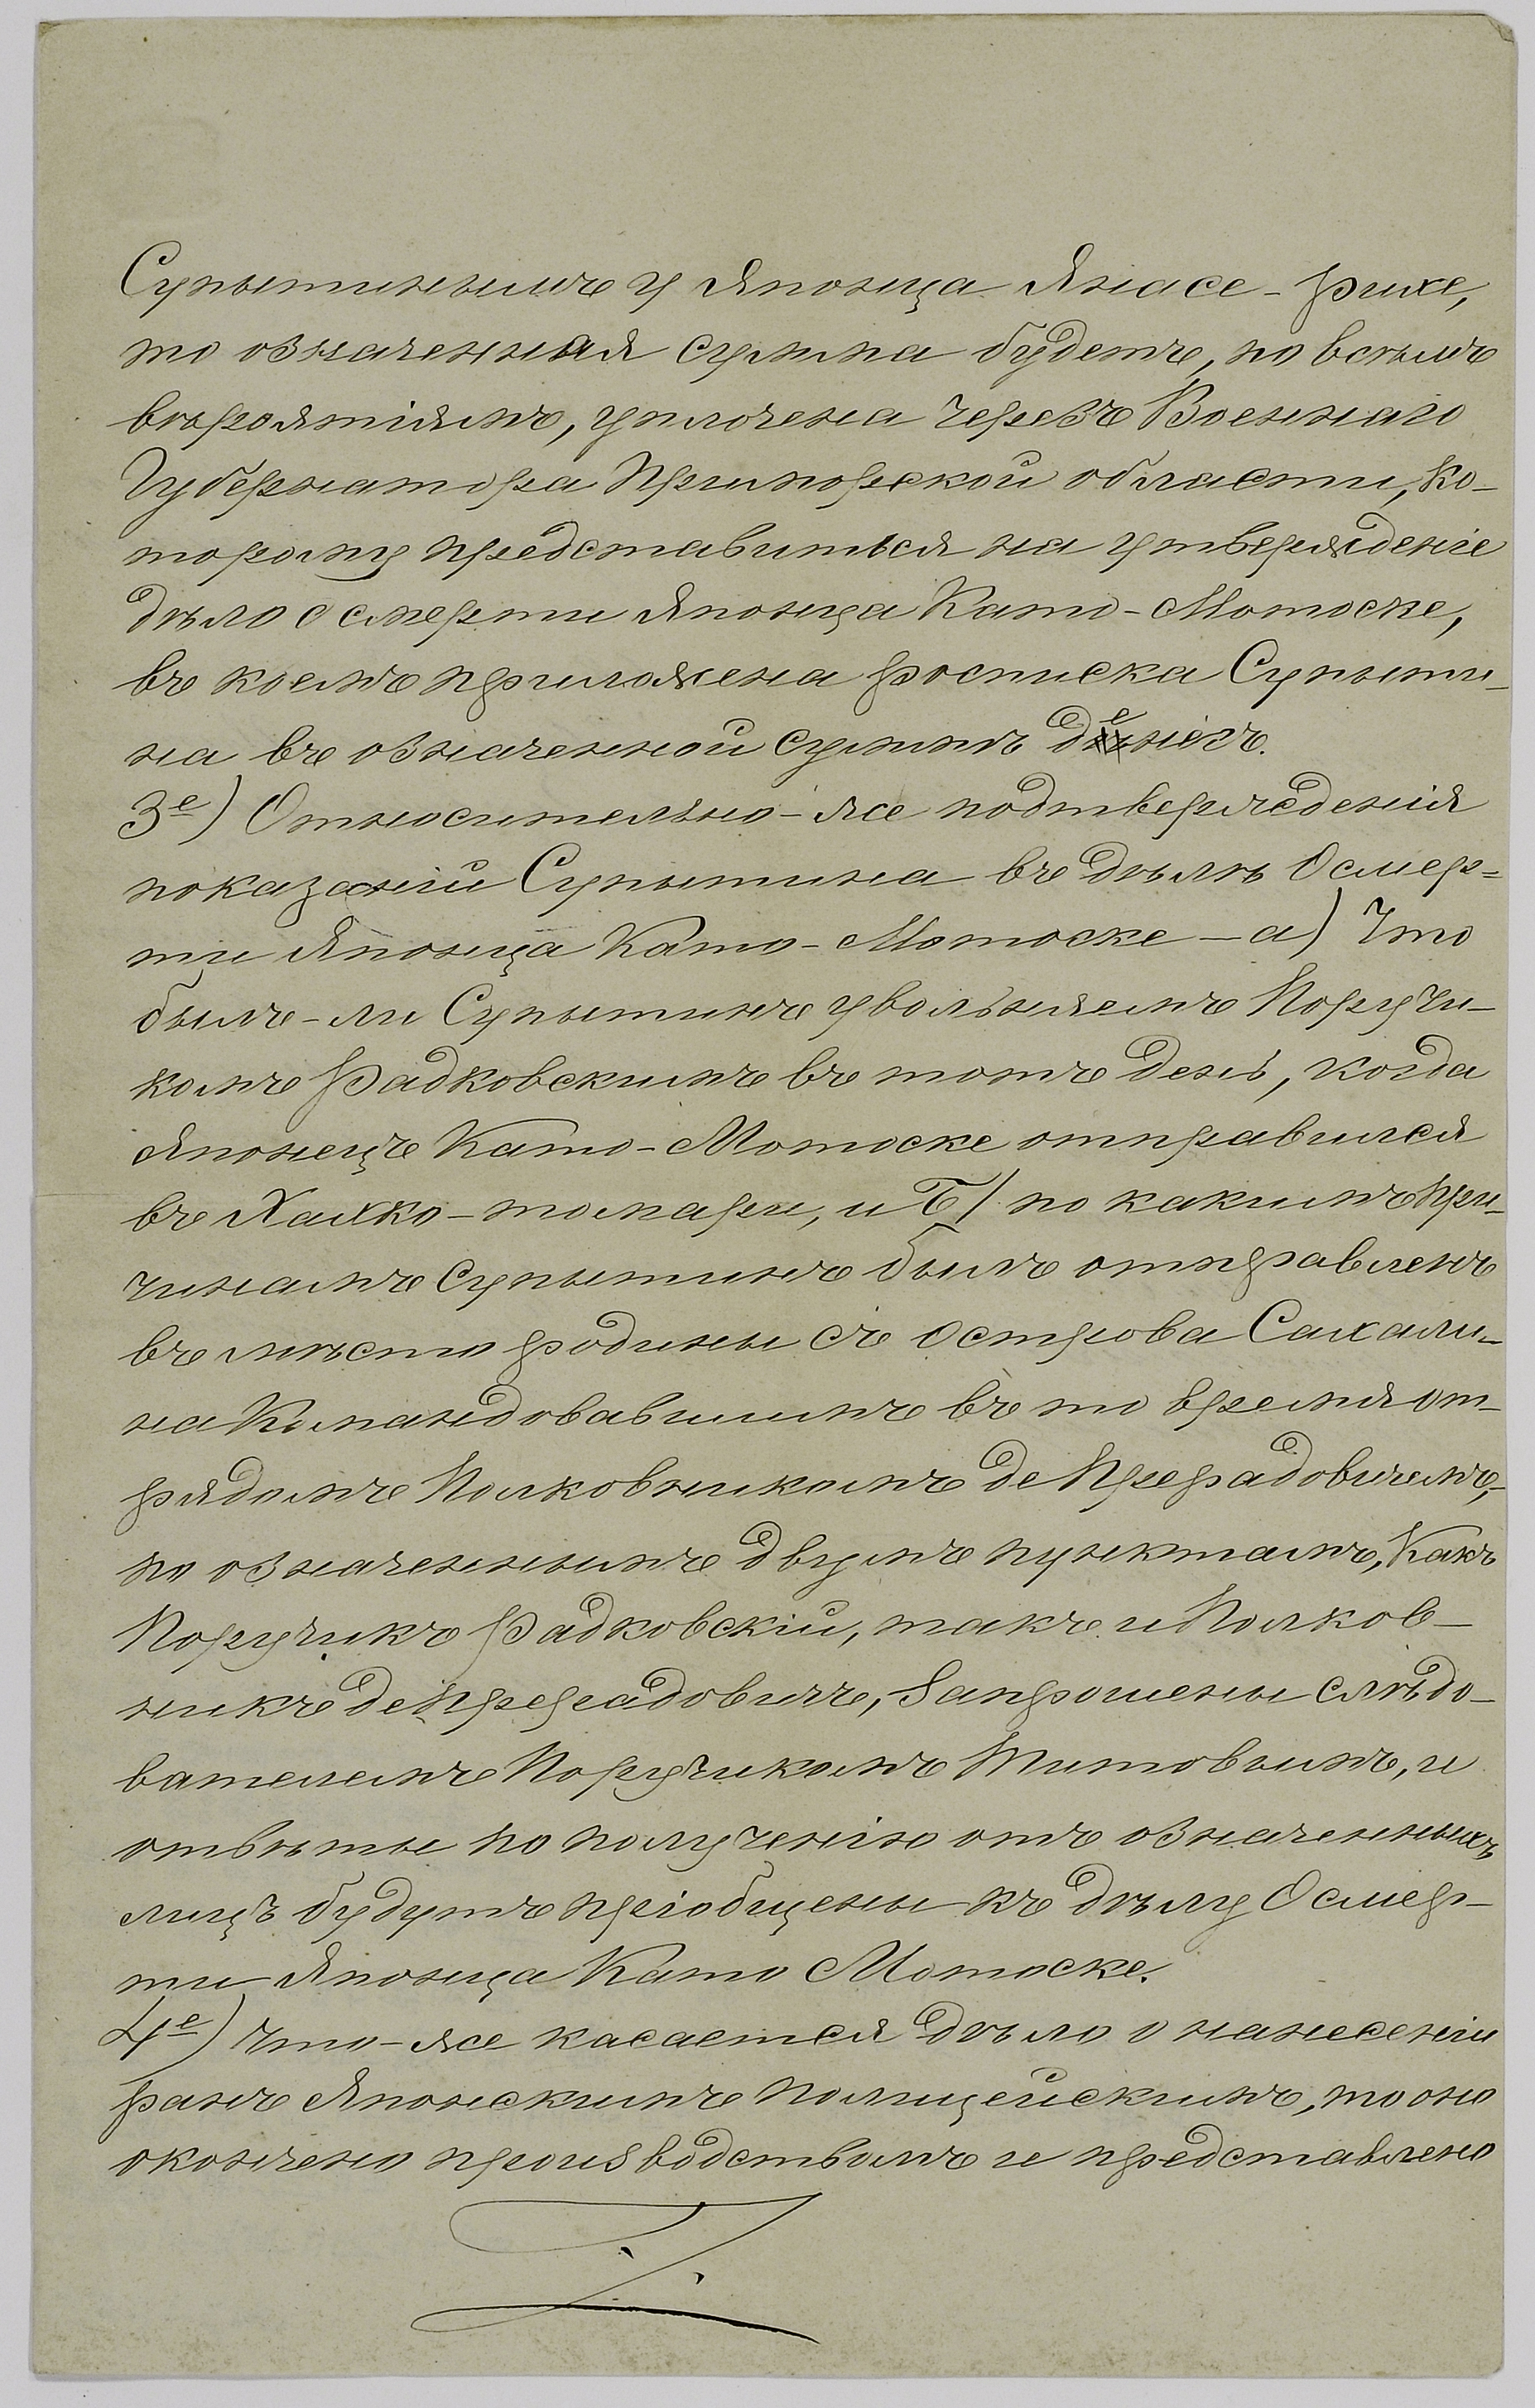 Супытинымъ у Японца Янасе-Рихе,
то означенная сумма будетъ, по всѣмъ
вѣроятіямъ, уплочена черезъ Военнаго
Губернатора Приморской области, ко-
торому представиться на утвержденіе
дѣло о смерти Японца Като-Мотоске,
въ коемъ приложена росписка Супыти-
на въ означенной суммѣ денегъ.
3е) Относительно-же подтвержденія
показаній Супытина въ дѣлѣ О смер-
ти Японца Като-Мотоске — а) Что
былъ-ли Супытинъ увольняемъ Поручи-
комъ Радковскимъ въ тотъ день, когда
Японецъ Като-Мотоске отправился
въ Хахко-томари, и Б/ по какимъ при-
чинамъ Супытинъ былъ отправленъ
въ мѣсто родины съ Острова Сахали-
на Командовавшимъ въ то время от-
рядомъ Полковникомъ де Прерадовичемъ,-
по означеннымъ двумъ пунктамъ, Какъ
Поручикъ Радковскій, такъ и Полков-
никъ де Прерадовичъ, Запрошены слѣдо-
вателемъ Поручикомъ Титовымъ, и
отвѣты по полученію отъ означенныхъ
лицъ будутъ пріобщены къ дѣлу О смер-
ти Японца Като Мотоске.
4е) Что-же касается дѣло о нанесеніи
ранъ Японскимъ полицейскимъ, то оно
окончено производствомъ и представлено